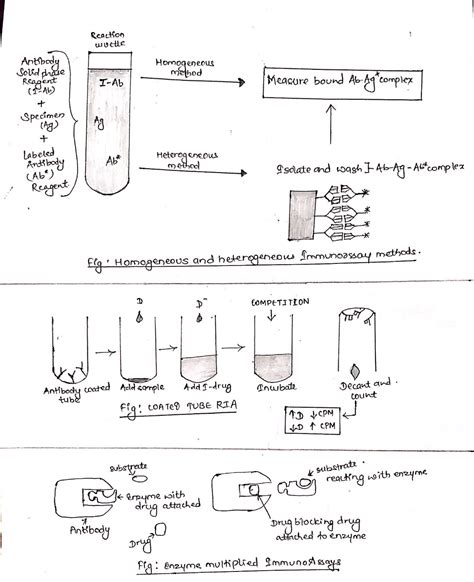 Reaction
cuvette
Antibody
Solid phase
Reagent
(I-Ab)
+
Specimen
(Ag)
+
Labeled
Antibody
(Ab*)
Reagent
I-Ab
Ag
Ab*
Homogeneous
method
Heterogeneous
method
Measure bound Ab-Ag* complex
Isolate and wash I-Ab-Ag-Ab* complex
Fig: Homogeneous and heterogeneous Immunoassay methods.
D
D⁻
COMPETITION
Antibody coated
tube
Add sample
Add I-drug
Incubate
Decant and
count
Fig: COATED TUBE RIA
↑D ↓CPM
↓D ↑CPM
substrate
Enzyme with
drug attached
Antibody
Drug
substrate
reacting with enzyme
Drug blocking drug
attached to enzyme
Fig: Enzyme multiplied ImmunoAssays